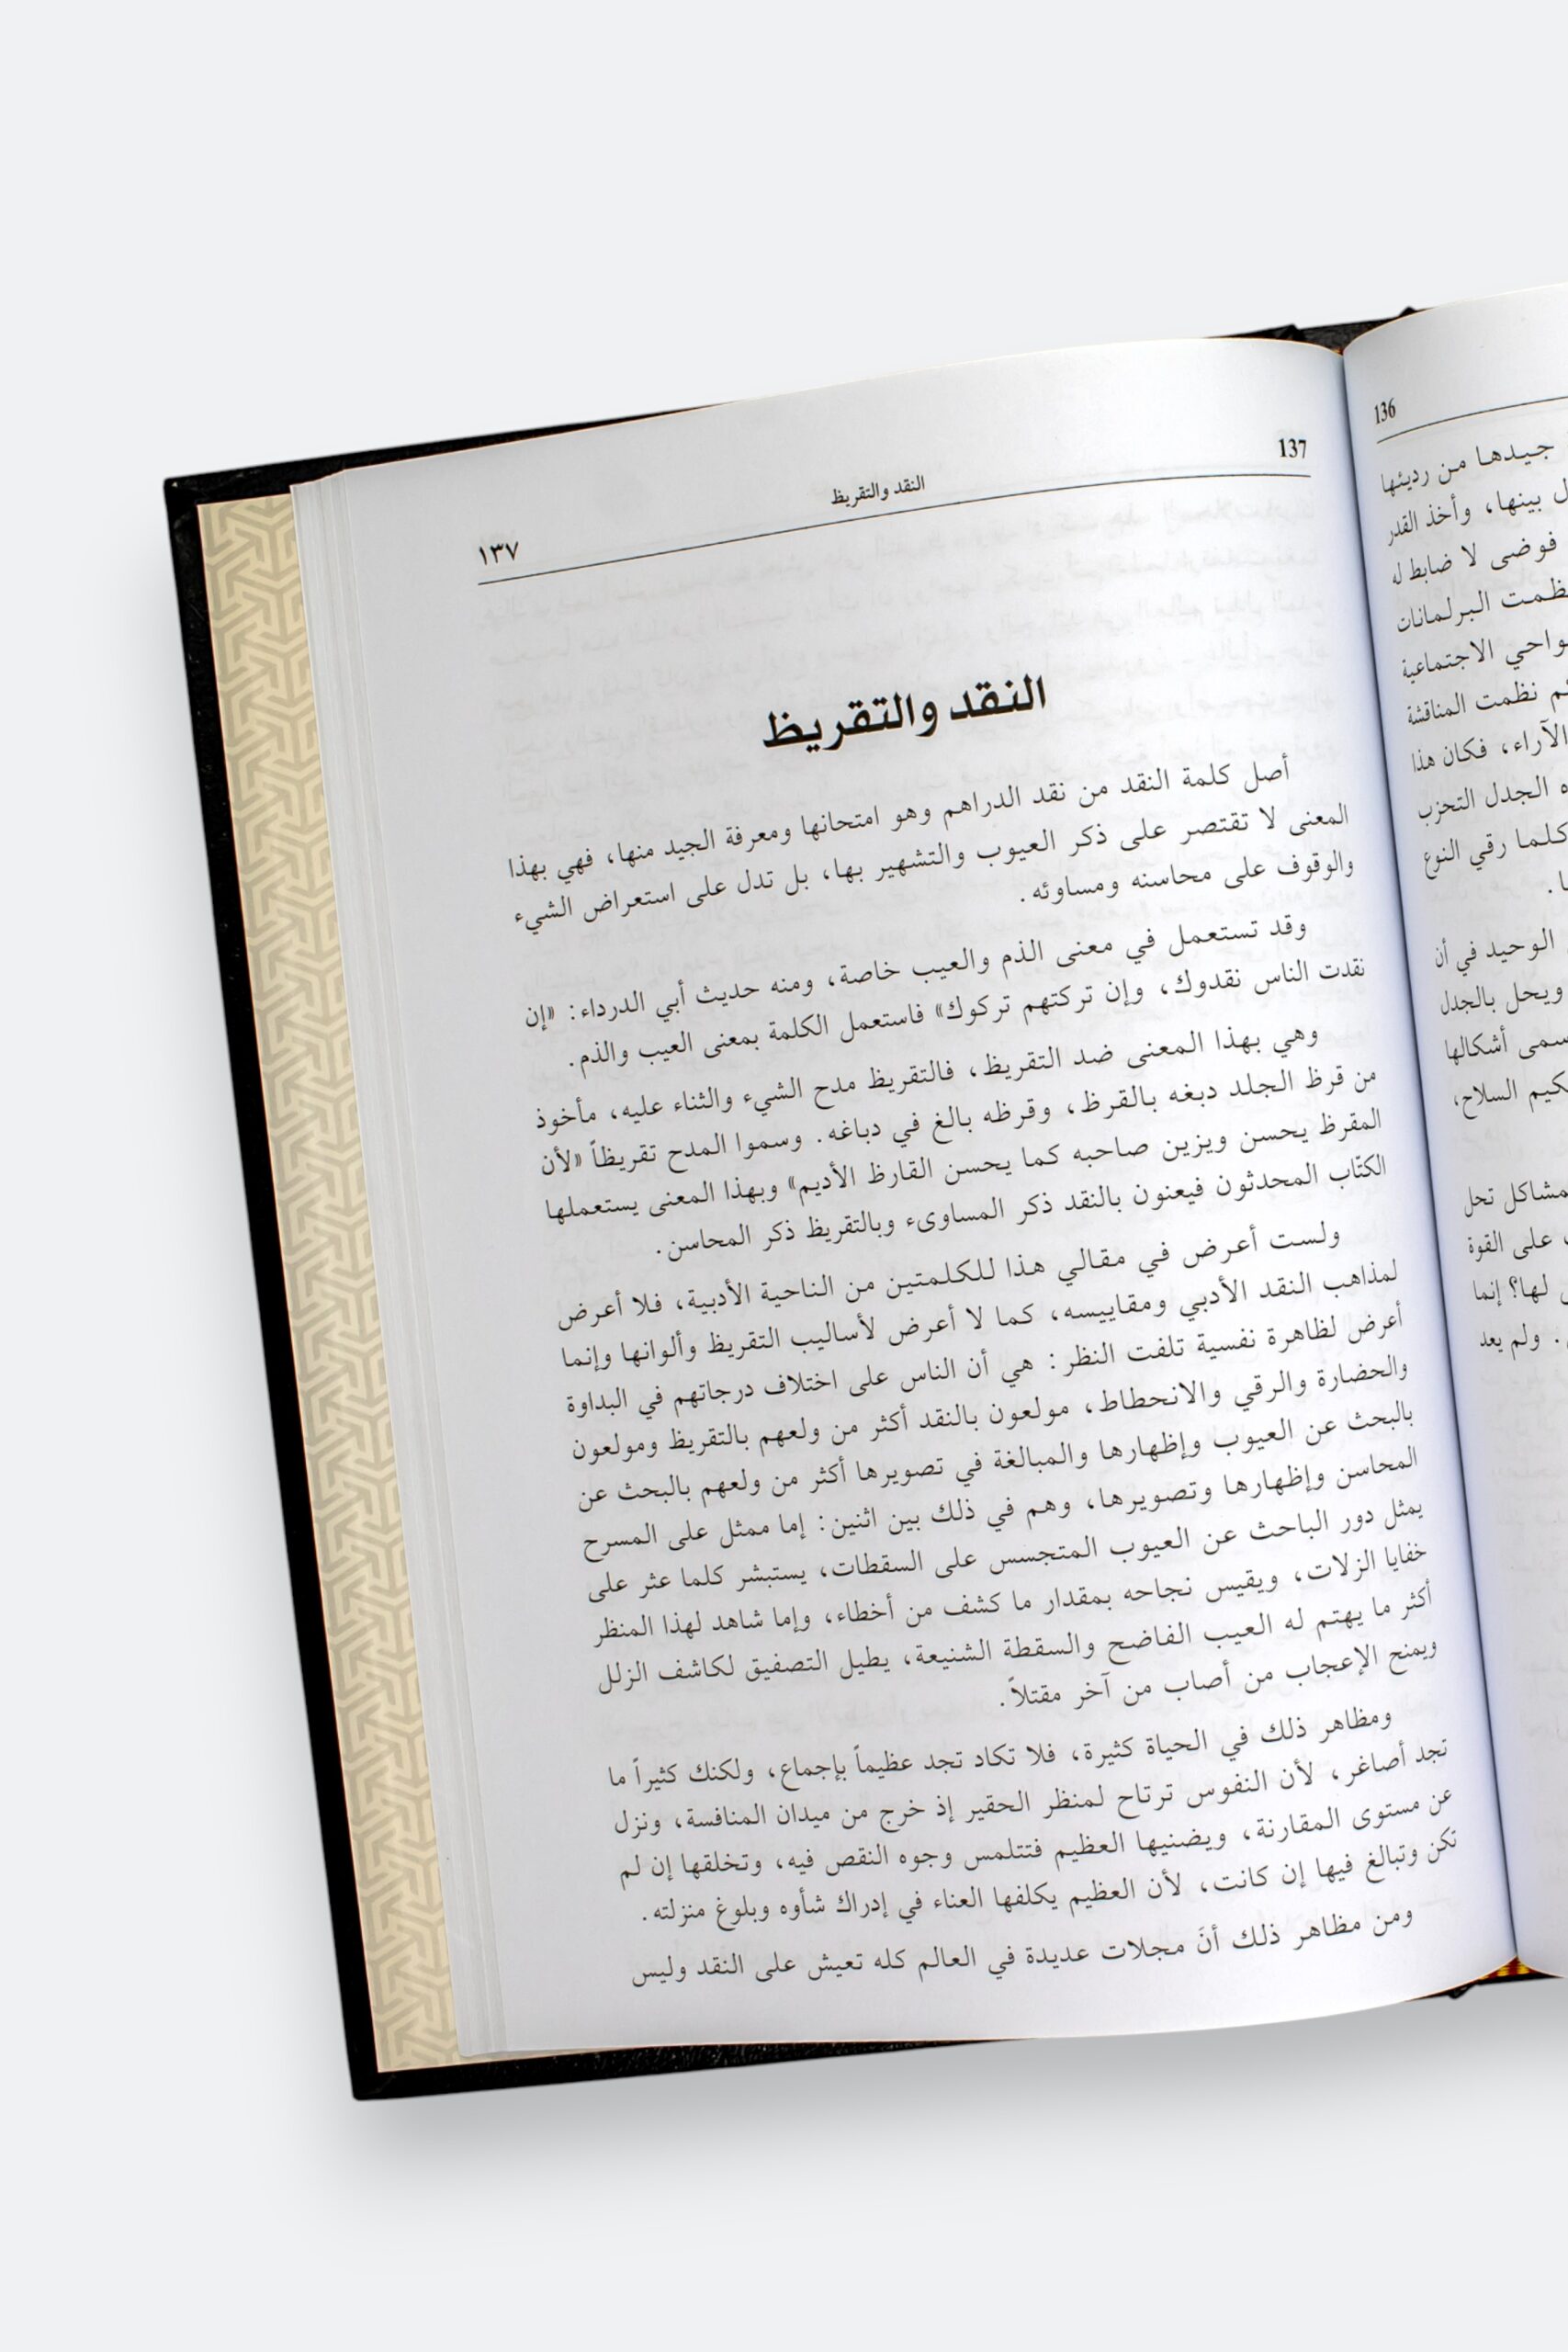 136
جيدها من رديئها
بينها، وأخذ القدر
فوضى لا ضابط له
البرلمانات
الاجتماعية
نظمت المناقشة
الآراء، فكان هذا
الجدل التحزب
كلما رقي النوع
الوحيد في أن
ويحل بالجدل
أشكالها
السلاح،
تحل
على القوة
لها؟ إنما
. ولم يعد
137
النقد والتقريظ
١٣٧
النقد والتقريظ
أصل كلمة النقد من نقد الدراهم وهو امتحانها ومعرفة الجيد منها، فهي بهذا
المعنى لا تقتصر على ذكر العيوب والتشهير بها، بل تدل على استعراض الشيء
والوقوف على محاسنه ومساوئه.
وقد تستعمل في معنى الذم والعيب خاصة، ومنه حديث أبي الدرداء: «إن
نقدت الناس نقدوك، وإن تركتهم تركوك» فاستعمل الكلمة بمعنى العيب والذم.
وهي بهذا المعنى ضد التقريظ، فالتقريظ مدح الشيء والثناء عليه، مأخوذ
من قرظ الجلد دبغه بالقرظ، وقرظه بالغ في دباغه. وسموا المدح تقريظاً «لأن
المقرظ يحسن ويزين صاحبه كما يحسن القارظ الأديم» وبهذا المعنى يستعملها
الكتّاب المحدثون فيعنون بالنقد ذكر المساوىء وبالتقريظ ذكر المحاسن.
ولست أعرض في مقالي هذا للكلمتين من الناحية الأدبية، فلا أعرض
لمذاهب النقد الأدبي ومقاييسه، كما لا أعرض لأساليب التقريظ وألوانها وإنما
أعرض لظاهرة نفسية تلفت النظر: هي أن الناس على اختلاف درجاتهم في البداوة
والحضارة والرقي والانحطاط، مولعون بالنقد أكثر من ولعهم بالتقريظ ومولعون
بالبحث عن العيوب وإظهارها والمبالغة في تصويرها أكثر من ولعهم بالبحث عن
المحاسن وإظهارها وتصويرها، وهم في ذلك بين اثنين: إما ممثل على المسرح
يمثل دور الباحث عن العيوب المتجسس على السقطات، يستبشر كلما عثر على
خفايا الزلات، ويقيس نجاحه بمقدار ما كشف من أخطاء، وإما شاهد لهذا المنظر
أكثر ما يهتم له العيب الفاضح والسقطة الشنيعة، يطيل التصفيق لكاشف الزلل
ويمنح الإعجاب من أصاب من آخر مقتلاً.
ومظاهر ذلك في الحياة كثيرة، فلا تكاد تجد عظيماً بإجماع، ولكنك كثيراً ما
تجد أصاغر، لأن النفوس ترتاح لمنظر الحقير إذ خرج من ميدان المنافسة، ونزل
عن مستوى المقارنة، ويضنيها العظيم فتتلمس وجوه النقص فيه، وتخلقها إن لم
تكن وتبالغ فيها إن كانت، لأن العظيم يكلفها العناء في إدراك شأوه وبلوغ منزلته.
ومن مظاهر ذلك أنَ مجلات عديدة في العالم كله تعيش على النقد وليس